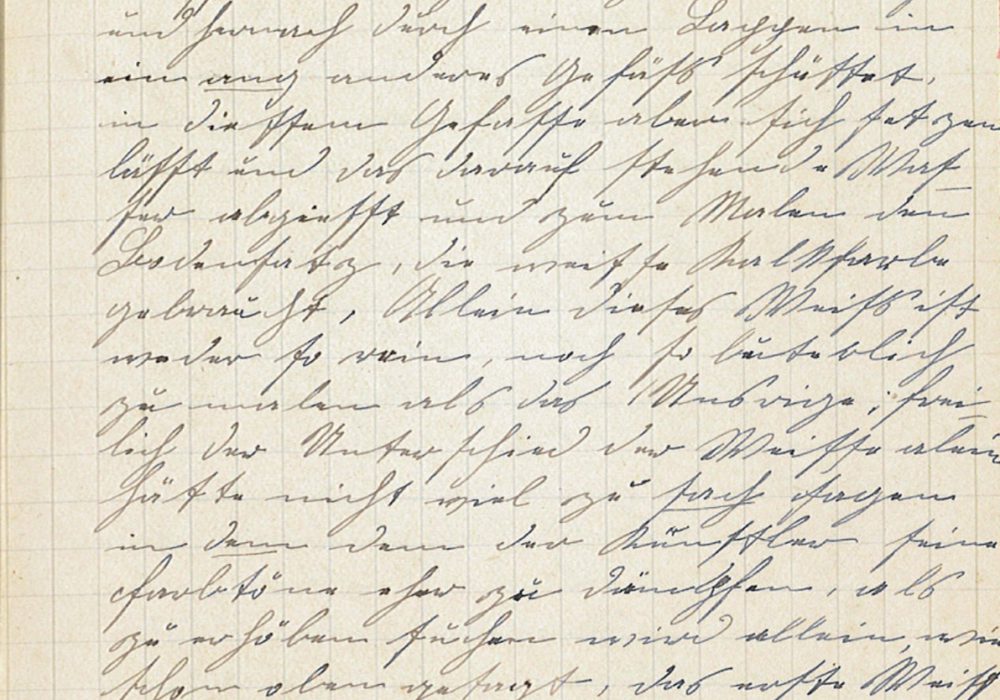 und hernach durch einen Lappen in
ein ang anderes Gefäß schüttet,
in diessem Gefasse aber sich setzen
läßt und das darauf stehende Waß
ser abgießt und zum Malen den
Bodensatz, die weisse Kalkfarbe
gebraucht, Allein dieses Weiß ist
weder so rein, noch so
zu malen als das Unsrige, frei
lich der Unterschied der Weisse alein
hätte nicht viel zu sach sagen
in dem dem der Künstler seine
Farbtöne eher zu dämpfen, als
zu erhöben suchen wird allein, wie
schon oben gesagt, das erste Weiß